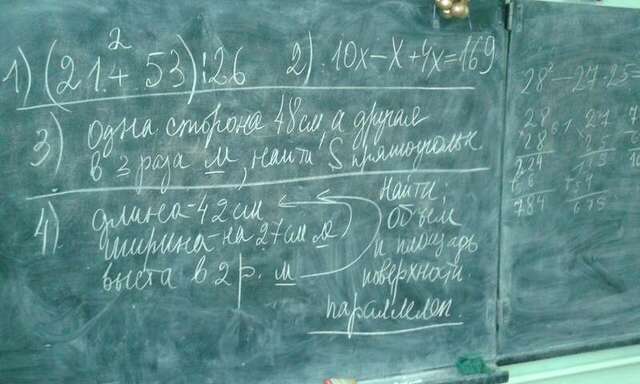 1) (21² + 53) : 26
2) 10x - x + 4x = 169
3) Одна сторона 48 см, а другая
в 3 раза м, найти S прямоугольн.
4) длина - 42 см
ширина - на 27 см м
выста в 2 р. м
Найти:
Объем
и площадь
поверхнсти
параллелеп.
28² - 27·25
28
28
224
784
27
25
675